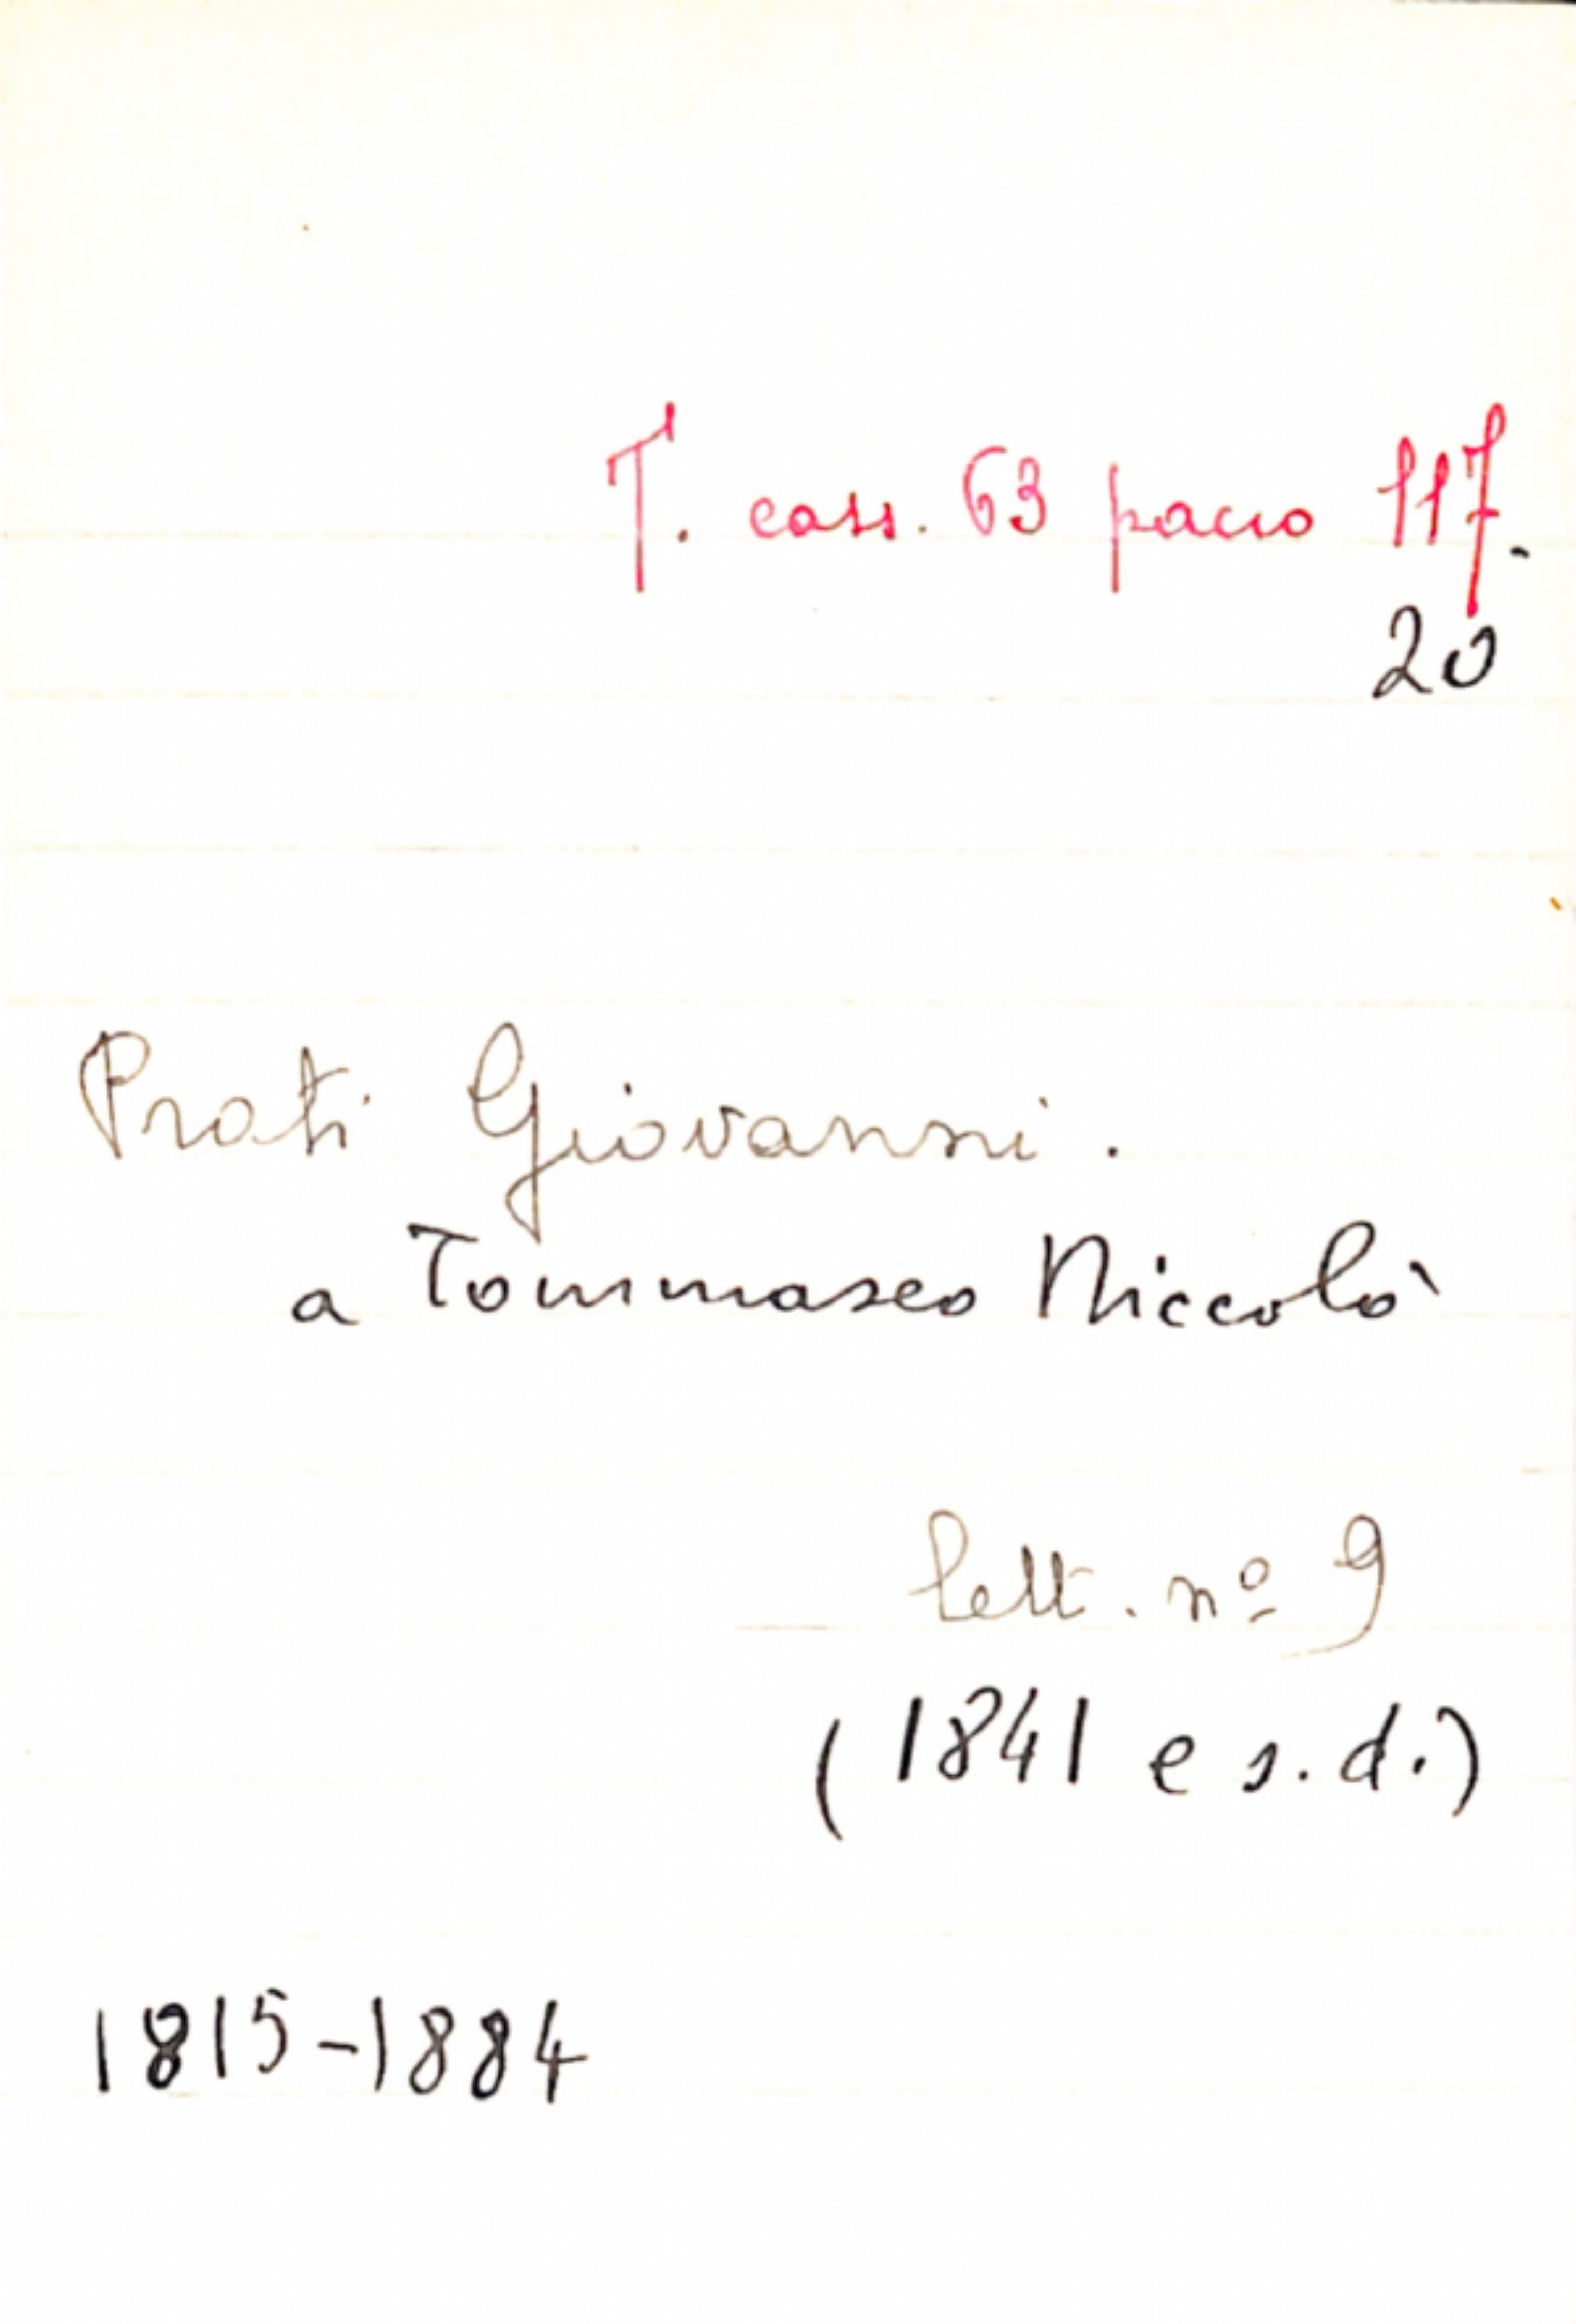 T. cass. 63 pacco 117.
20
Prati Giovanni.
a Tommaseo Niccolò
lett. nº 9
(1841 e s.d.)
1815-1884